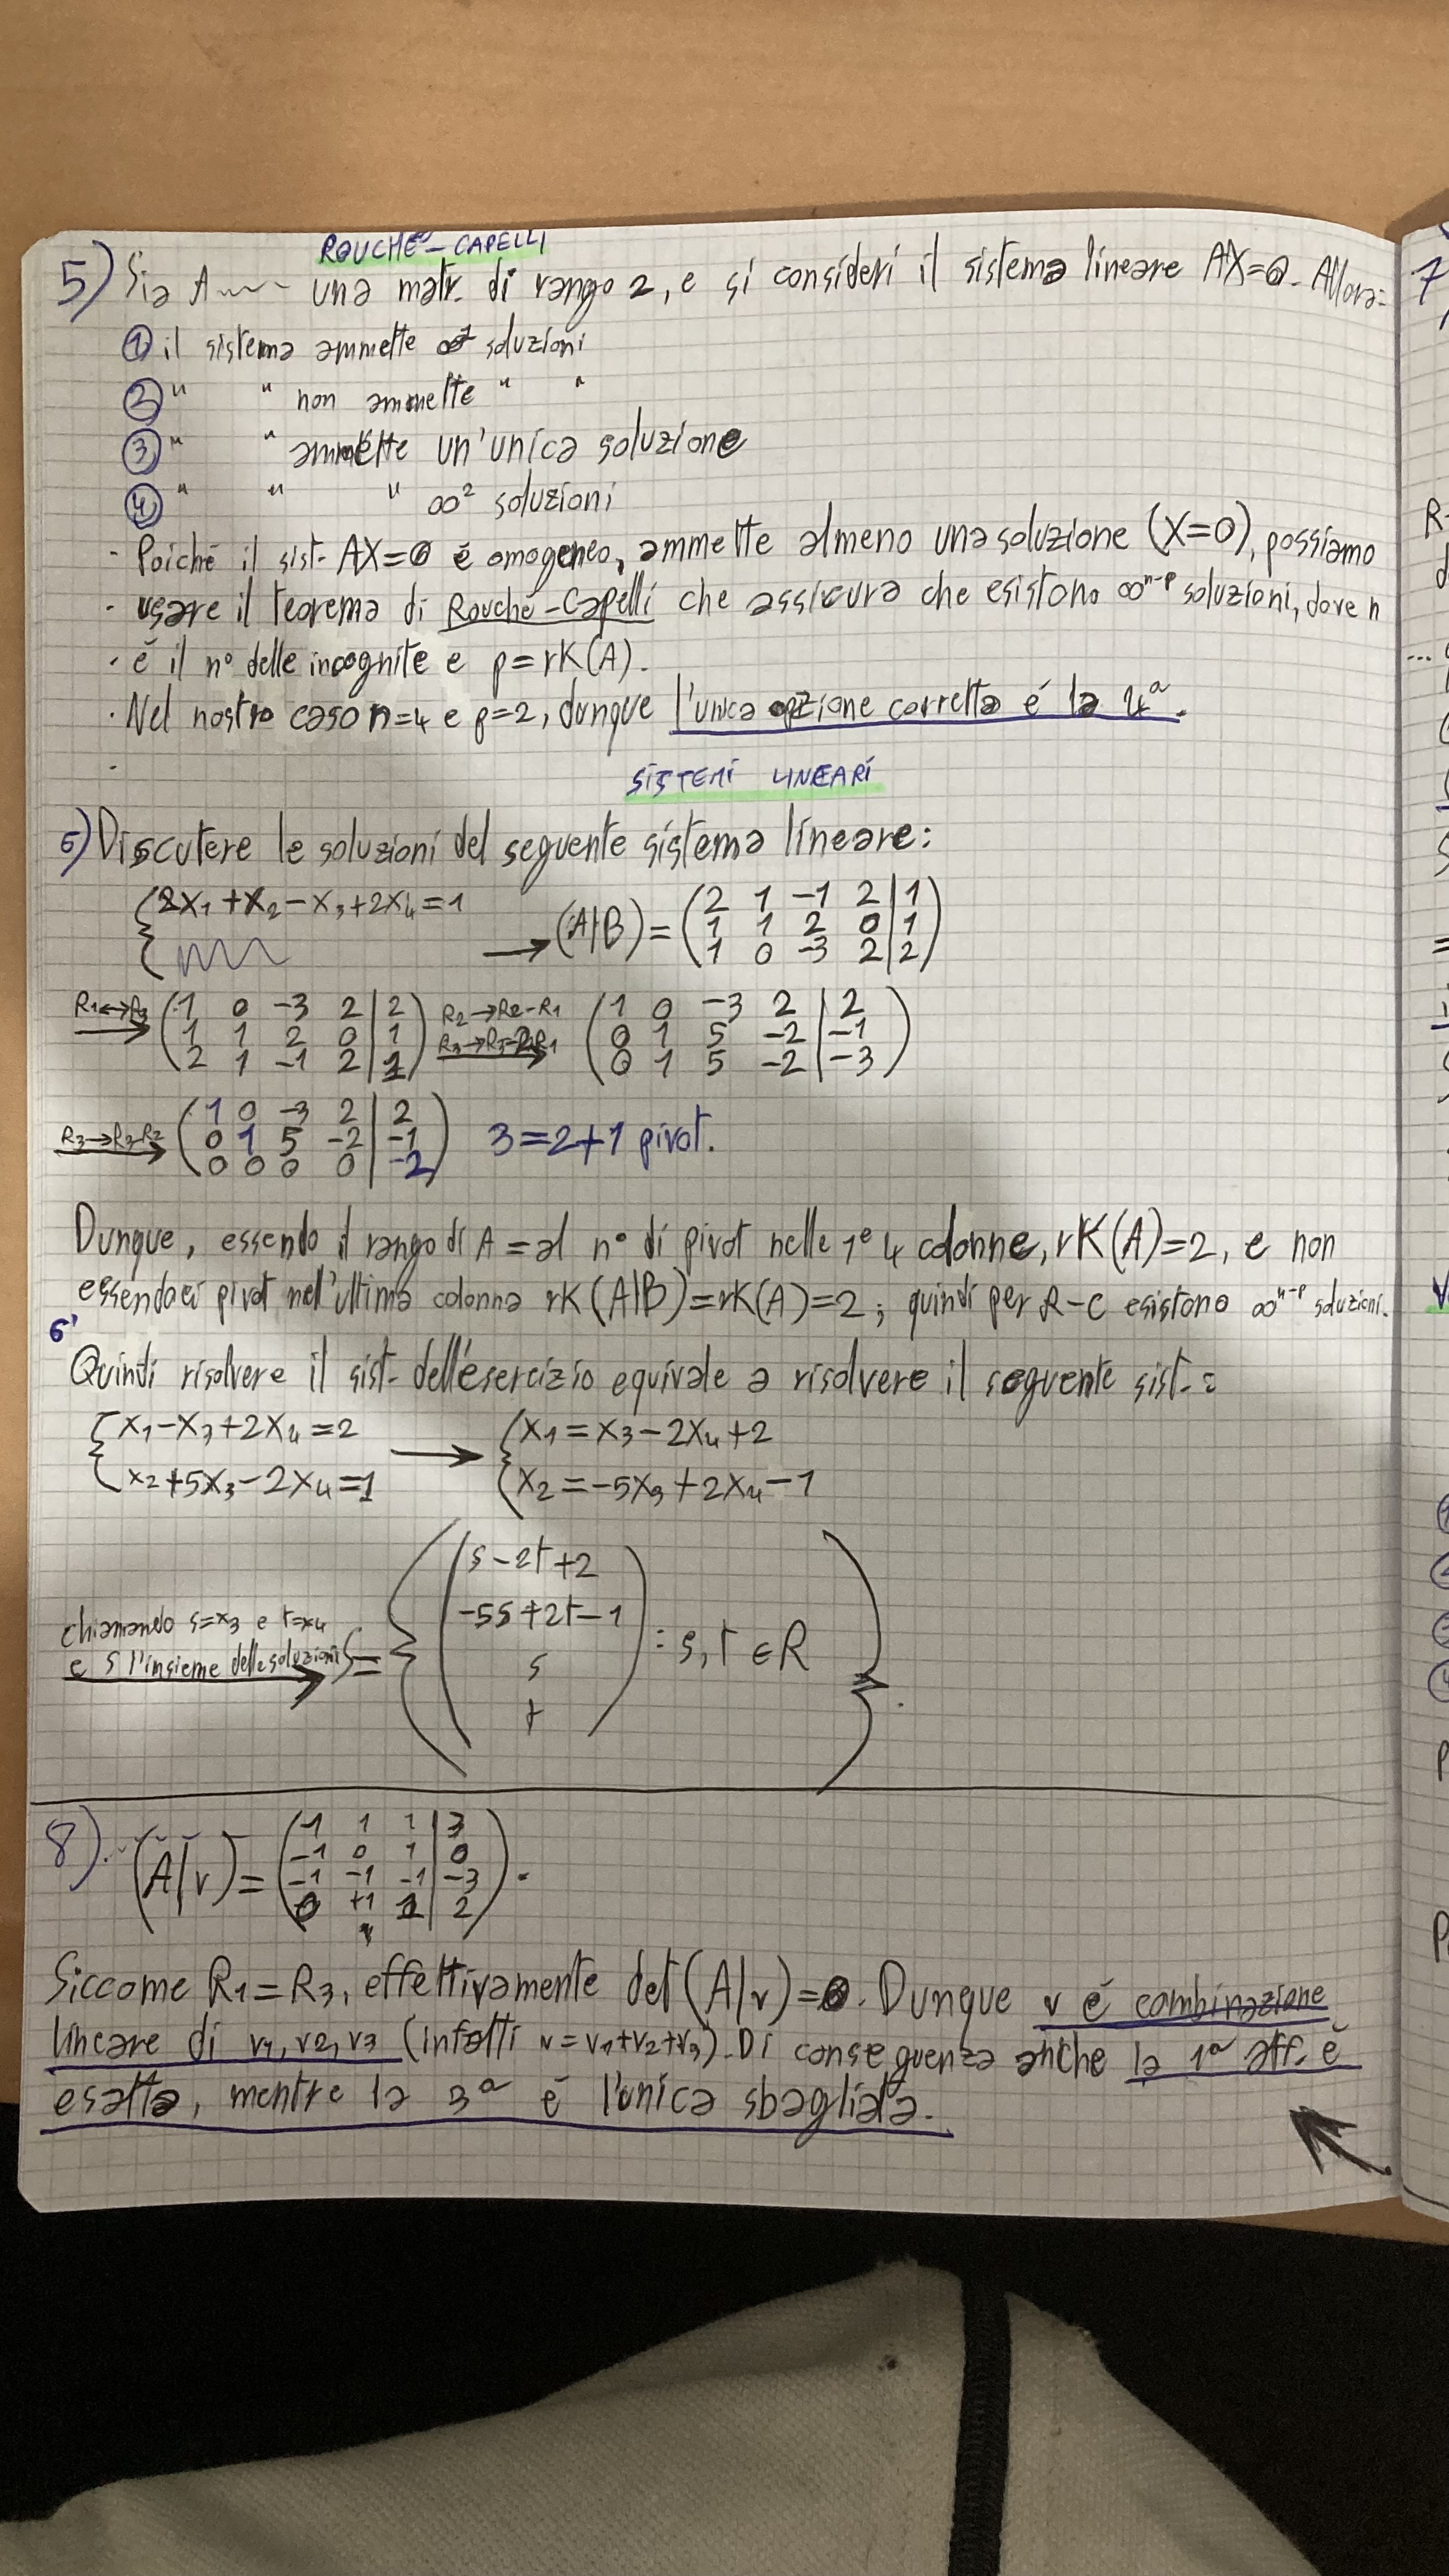 ROUCHÉ-CAPELLI
5) Sia A una matr. di rango 2, e si consideri il sistema lineare AX=0. Allora:
① il sistema ammette soluzioni
② " " non ammette " "
③ " " ammette un'unica soluzione
④ " " " ∞² soluzioni
- Poiché il sist. AX=0 é omogeneo, ammette almeno una soluzione (X=0), possiamo
· usare il teorema di Rouché-Capelli che assicura che esistono ∞ⁿ⁻ᵖ soluzioni, dove n
· é il n° delle incognite e p=rK(A).
· Nel nostro caso n=4 e p=2, dunque l'unica opzione corretta é la 4ª.
SISTEMI LINEARI
6) Discutere le soluzioni del seguente sistema lineare:
{ 2x₁+x₂-x₃+2x₄=1 → (A|B) = ( 2 1 -1 2 | 1
1 1 2 0 | 1
1 0 -3 2 | 2 )
R₁↔R₃ → ( 1 0 -3 2 | 2 R₂→R₂-R₁ ( 1 0 -3 2 | 2
1 1 2 0 | 1 R₃→R₃-2R₁ → 0 1 5 -2 | -1
2 1 -1 2 | 1 ) 0 1 5 -2 | -3 )
R₃→R₃-R₂ → ( 1 0 -3 2 | 2
0 1 5 -2 | -1 3=2+1 pivot.
0 0 0 0 | -2 )
Dunque, essendo il rango di A = al n° di pivot nelle 1ᵉ 4 colonne, rK(A)=2, e non
essendoci pivot nell'ultima colonna rK(A|B)=rK(A)=2; quindi per R-C esistono ∞ⁿ⁻ᵖ soluzioni.
6'
Quindi risolvere il sist. dell'esercizio equivale a risolvere il seguente sist.:
{ x₁-x₃+2x₄=2 → { x₁=x₃-2x₄+2
x₂+5x₃-2x₄=1 x₂=-5x₃+2x₄-1
chiamando s=x₃ e t=x₄
e S l'insieme delle soluzioni → S= { ( s-2t+2
-5s+2t-1
s
t ) : s,t ∈ R }.
8). (A|v) = ( 1 1 1 | 3
-1 0 1 | 0
-1 -1 -1 | -3
0 +1 1 | 2 ).
Siccome R₁=R₃, effettivamente det(A|v)=0. Dunque v é combinazione
lineare di v₁, v₂, v₃ (infatti v=v₁+v₂+v₃). Di conseguenza anche la 1ª aff. é
esatta, mentre la 3ª é l'unica sbagliata.